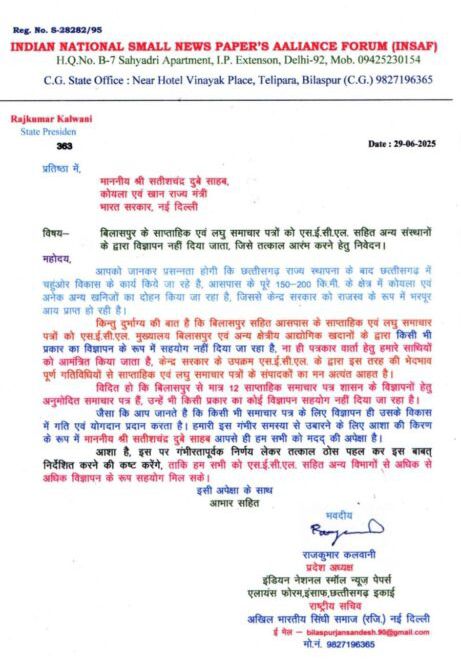 Reg. No. S-28282/95
INDIAN NATIONAL SMALL NEWS PAPER'S AALIANCE FORUM (INSAF)
H.Q.No. B-7 Sahyadri Apartment, I.P. Extenson, Delhi-92, Mob. 09425230154
C.G. State Office : Near Hotel Vinayak Place, Telipara, Bilaspur (C.G.) 9827196365
Rajkumar Kalwani
State Presiden
363
Date : 29-06-2025
प्रतिष्ठा में,
माननीय श्री सतीशचंद्र दुबे साहब,
कोयला एवं खान राज्य मंत्री
भारत सरकार, नई दिल्ली
विषय— बिलासपुर के साप्ताहिक एवं लघु समाचार पत्रों को एस.ई.सी.एल. सहित अन्य संस्थानों
के द्वारा विज्ञापन नहीं दिया जाता, जिसे तत्काल आरंभ करने हेतु निवेदन।
महोदय,
आपको जानकर प्रसन्नता होगी कि छत्तीसगढ़ राज्य स्थापना के बाद छत्तीसगढ़ में
चहुंओर विकास के कार्य किये जा रहे है, आसपास के पूरे 150—200 कि.मी. के क्षेत्र में कोयला एवं
अनेक अन्य खनिजों का दोहन किया जा रहा है, जिससे केन्द्र सरकार को राजस्व के रूप में भरपूर
आय प्राप्त हो रही है।
किन्तु दुर्भाग्य की बात है कि बिलासपुर सहित आसपास के साप्ताहिक एवं लघु समाचार
पत्रों को एस.ई.सी.एल. मुख्यालय बिलासपुर एवं अन्य क्षेत्रीय औद्योगिक खदानों के द्वारा किसी भी
प्रकार का विज्ञापन के रूप में सहयोग नहीं दिया जा रहा है, ना ही पत्रकार वार्ता हेतु हमारे साथियों
को आमंत्रित किया जाता है, केन्द्र सरकार के उपक्रम एस.ई.सी.एल. के द्वारा इस तरह की भेदभाव
पूर्ण गतिविधियों से साप्ताहिक एवं लघु समाचार पत्रों के संपादकों का मन अत्यंत आहत है।
विदित हो कि बिलासपुर से मात्र 12 साप्ताहिक समाचार पत्र शासन के विज्ञापनों हेतु
अनुमोदित समाचार पत्र हैं, उन्हें भी किसी प्रकार का कोई विज्ञापन सहयोग नहीं दिया जा रहा है।
जैसा कि आप जानते है कि किसी भी समाचार पत्र के लिए विज्ञापन ही उसके विकास
में गति एवं योगदान प्रदान करता है। हमारी इस गंभीर समस्या से उबारने के लिए आशा की किरण
के रूप में माननीय श्री सतीशचंद्र दुबे साहब आपसे ही हम सभी को मदद् की अपेक्षा है।
आशा है, इस पर गंभीरतापूर्वक निर्णय लेकर तत्काल ठोस पहल कर इस बाबत्
निर्देशित करने की कष्ट करेंगे, ताकि हम सभी को एस.ई.सी.एल. सहित अन्य विभागों से अधिक से
अधिक विज्ञापन के रूप सहयोग मिल सके।
इसी अपेक्षा के साथ
आभार सहित
भवदीय
राजकुमार कलवानी
प्रदेश अध्यक्ष
इंडियन नेशनल स्मॉल न्यूज़ पेपर्स
एलायंस फोरम,इंसाफ,छत्तीसगढ़ इकाई
राष्ट्रीय सचिव
अखिल भारतीय सिंधी समाज (रजि.) नई दिल्ली
ई मेल — bilaspurjansandesh.90@gmail.com
मो.नं. 9827196365